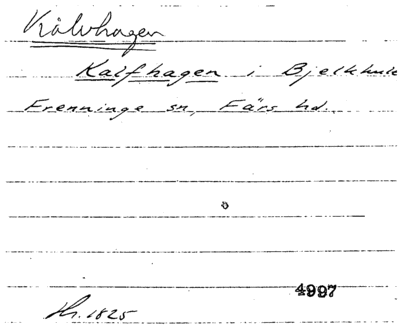 Kalvhagen
Kalfhagen i Bjelkhule
Frenninge sn, Färs hd.
4997
Hr. 1825